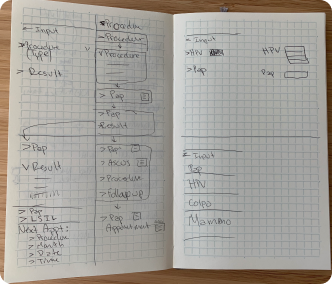 = Input
> Procedure
(Type)
> Result
> Pap
v Result
> Pap
> LSIL
Next Appt:
> Procedure
> Month
> Date
> Time
> Procedure
> Procedure
v Procedure
> Pap
> Pap
Result
> Pap
> Ascus
> Procedure
> Followup
> Pap
Appointment
= Input
> HPV
HPV
> Pap
Pap
= Input
Pap
HPV
Colpo
Mammo